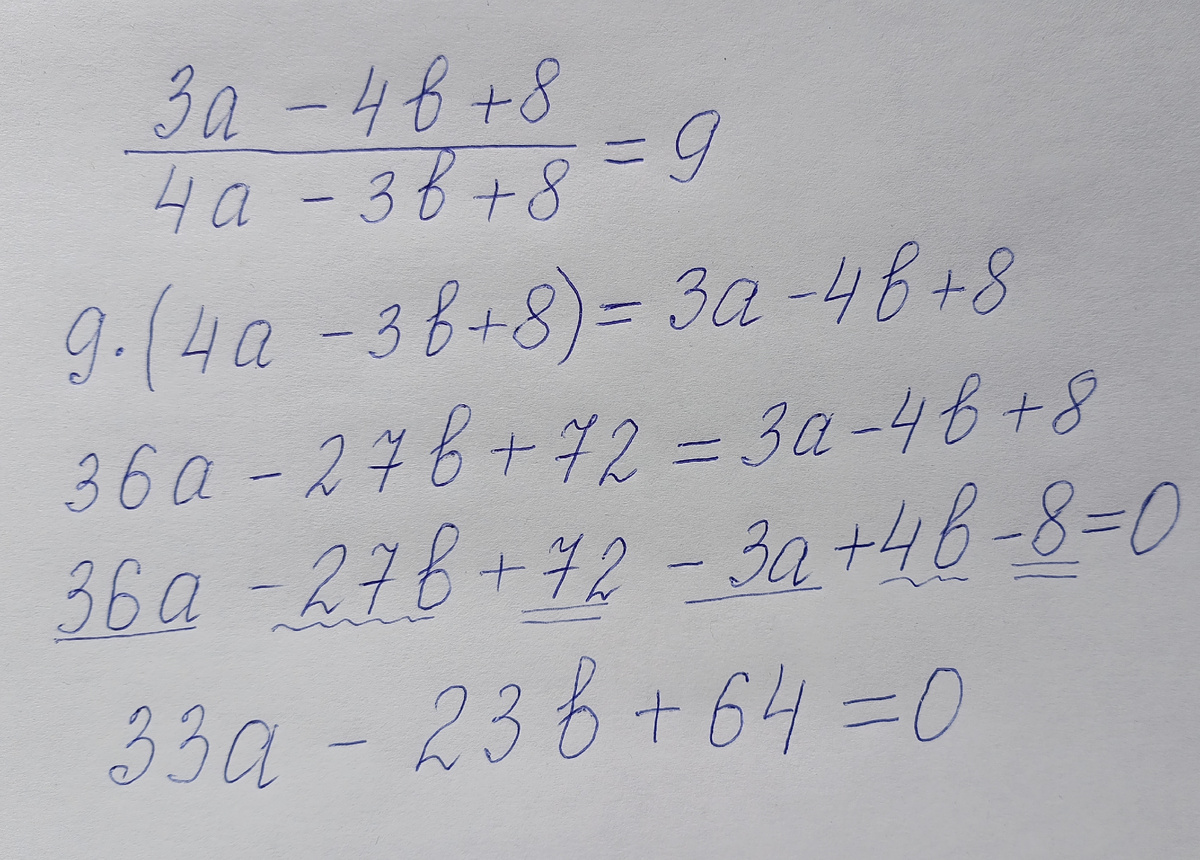 3a - 4b + 8
4a - 3b + 8 = 9
9·(4a - 3b + 8) = 3a - 4b + 8
36a - 27b + 72 = 3a - 4b + 8
36a - 27b + 72 - 3a + 4b - 8 = 0
33a - 23b + 64 = 0